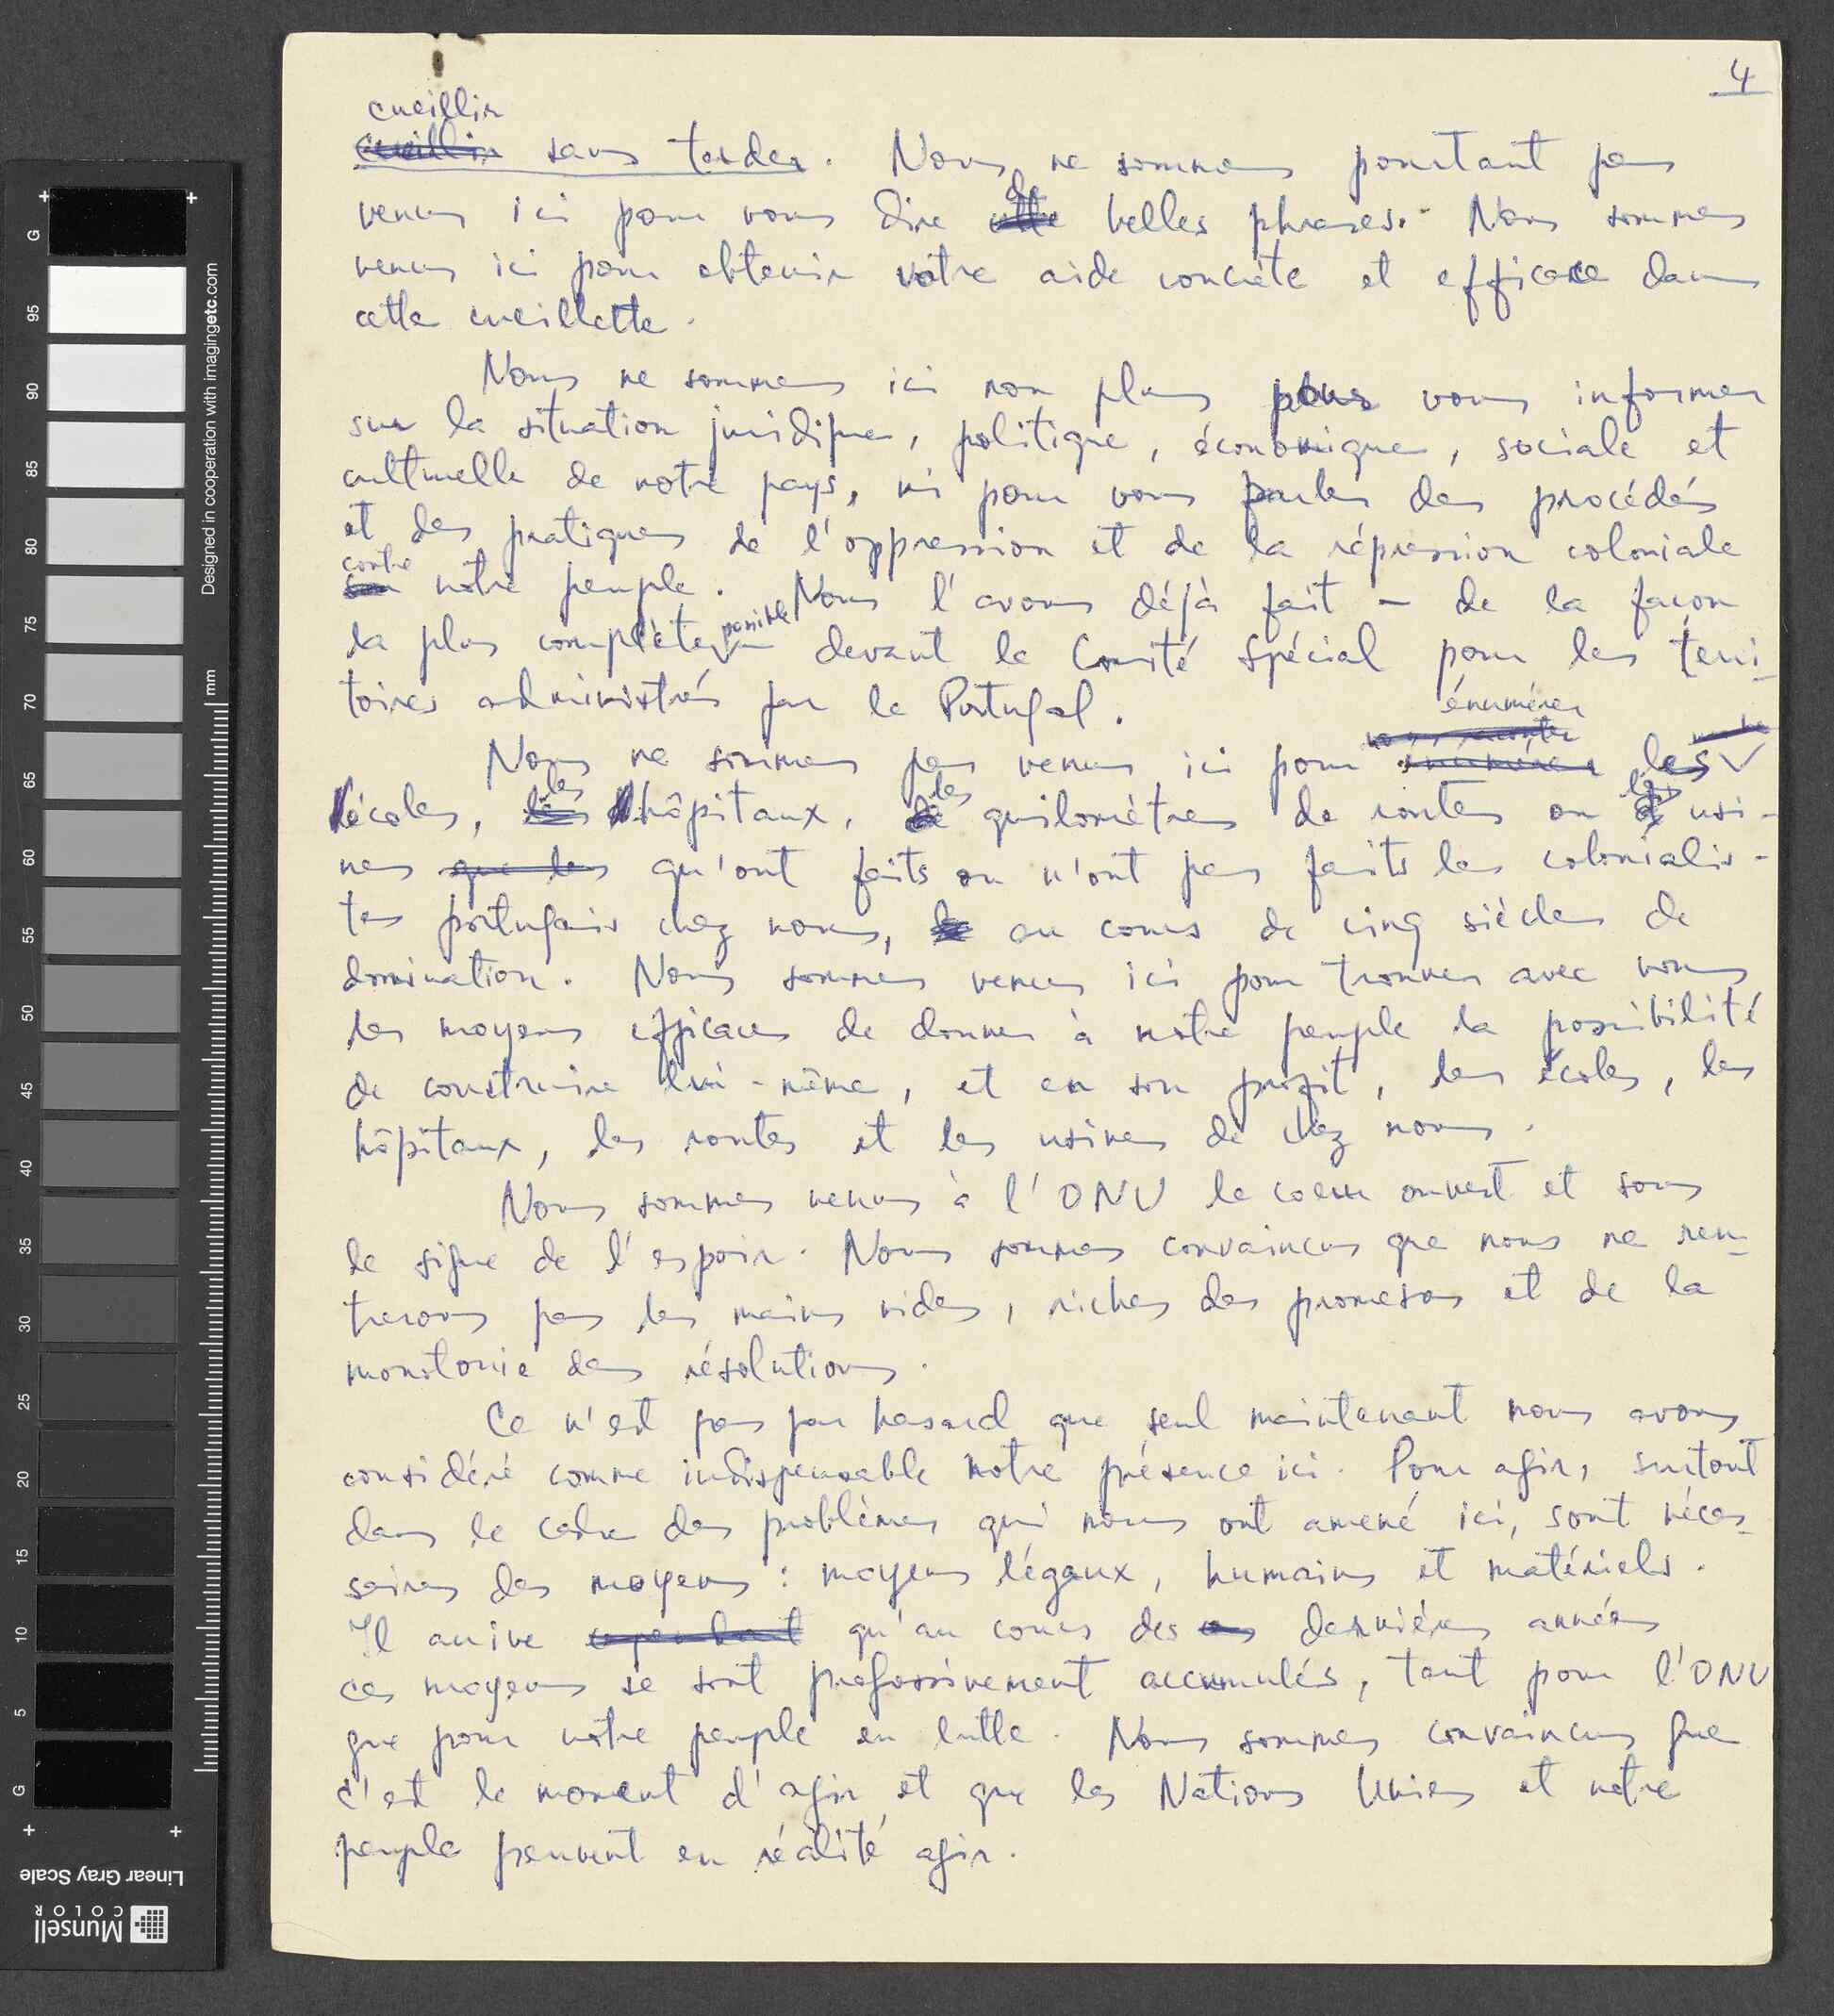 4
cueillir
cueillir sans tarder. Nous ne sommes pourtant pas
de
venus ici pour vous dire cette belles phrases. Nous sommes
venus ici pour obtenir votre aide concrète et efficace dans
cette cueillette.
Nous ne sommes ici non plus pour vous informer
sur la situation juridique, politique, économique, sociale et
culturelle de notre pays, ni pour vous parler des procédés
et des pratiques de l'oppression et de la répression coloniale
contre
notre peuple. Nous l'avons déjà fait - de la façon
possible
la plus complète - devant le Comité Spécial pour les terri-
toires administrés par le Portugal.
énumérer
vous raconter
Nous ne sommes pas venus ici pour énumérer les
les les les
écoles, hôpitaux, quilomètres de routes ou usi-
nes que les qu'ont faits ou n'ont pas faits les colonialis-
tes portugais chez nous, au cours de cinq siècles de
domination. Nous sommes venus ici pour trouver avec vous
les moyens efficaces de donner à notre peuple la possibilité
de construire lui-même, et en son profit, les écoles, les
hôpitaux, les routes et les usines de chez nous.
Nous sommes venus à l'ONU le coeur ouvert et sous
le signe de l'espoir. Nous sommes convaincus que nous ne ren-
trerons pas les mains vides, riches des promesses et de la
monotonie des résolutions.
Ce n'est pas par hasard que seul maintenant nous avons
considéré comme indispensable notre présence ici. Pour agir, surtout
dans le cadre des problèmes qui nous ont amené ici, sont néces-
saires des moyens : moyens légaux, humains et matériels.
Il arrive cependant qu'au cours des dernières années
ces moyens se sont progressivement accumulés, tant pour l'ONU
que pour notre peuple en lutte. Nous sommes convaincus que
c'est le moment d'agir et que les Nations Unies et notre
peuple peuvent en réalité agir.
Designed in cooperation with imagingetc.com
mm
G 95 90 85 80 75 70 65 60 55 50 45 40 35 30 25 20 15 10 5 G
Linear Gray Scale
Munsell
COLOR